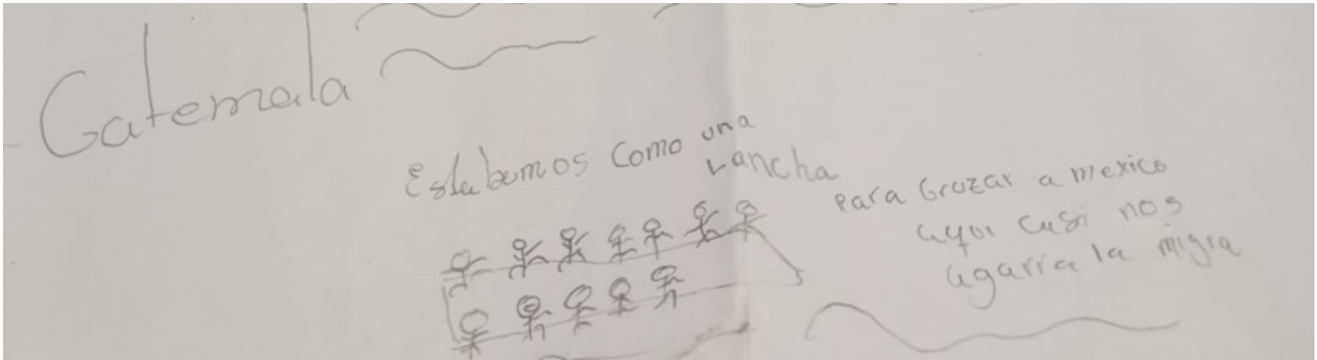 Gatemala
Estabamos como una
Lancha
Para Cruzar a mexico
aqui casi nos
agarra la migra